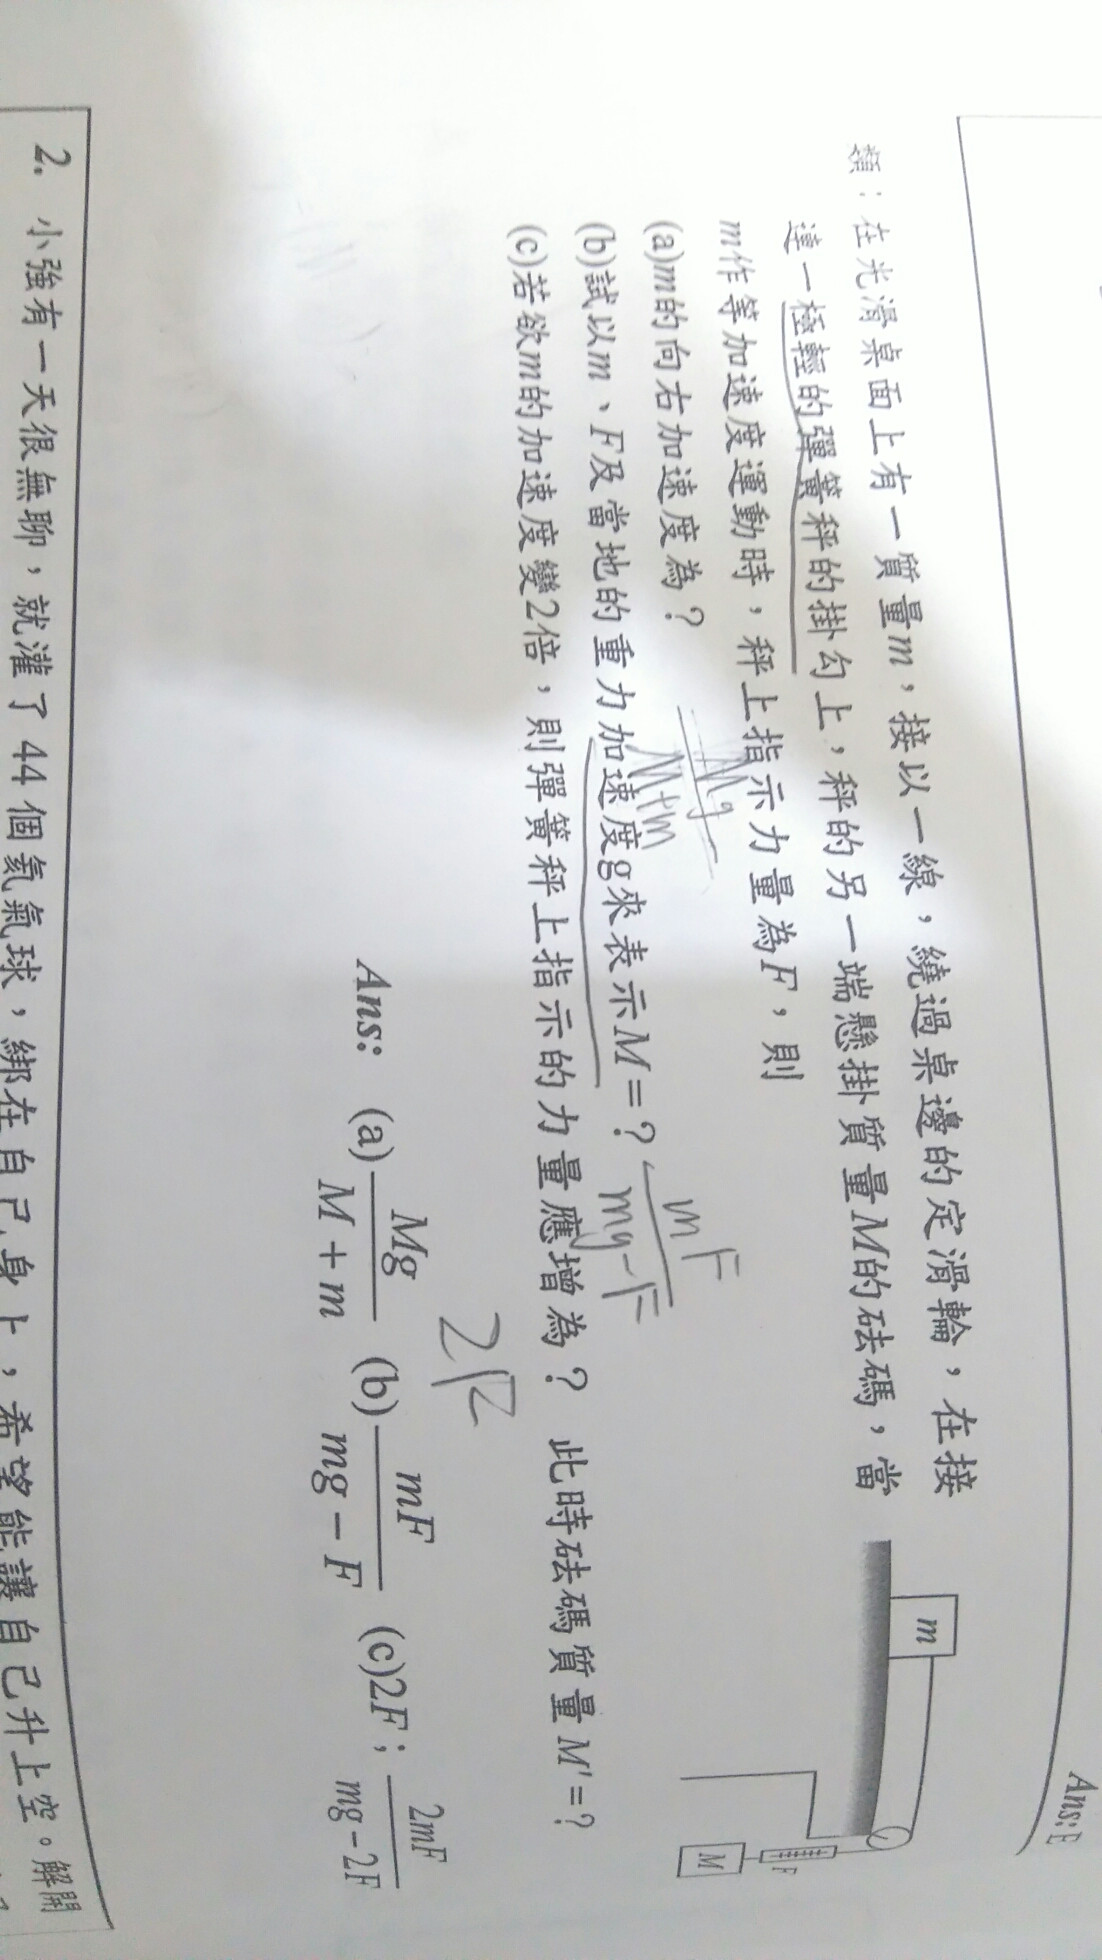 Ans: E
類：在光滑桌面上有一質量m，接以一線，繞過桌邊的定滑輪，在接
連一極輕的彈簧秤的掛勾上，秤的另一端懸掛質量M的砝碼，當
m作等加速度運動時，秤上指示力量為F，則
(a)m的向右加速度為？ Mg/M+m
(b)試以m、F及當地的重力加速度g來表示M=？ mF/mg-F
(c)若欲m的加速度變2倍，則彈簧秤上指示的力量應增為？ 此時砝碼質量M'=？
2F
m
F
M
Ans: (a) Mg/M+m (b) mF/mg-F (c)2F；2mF/mg-2F
2. 小強有一天很無聊，就灌了44個氦氣球，綁在自己身上，希望能讓自己升上空。解開